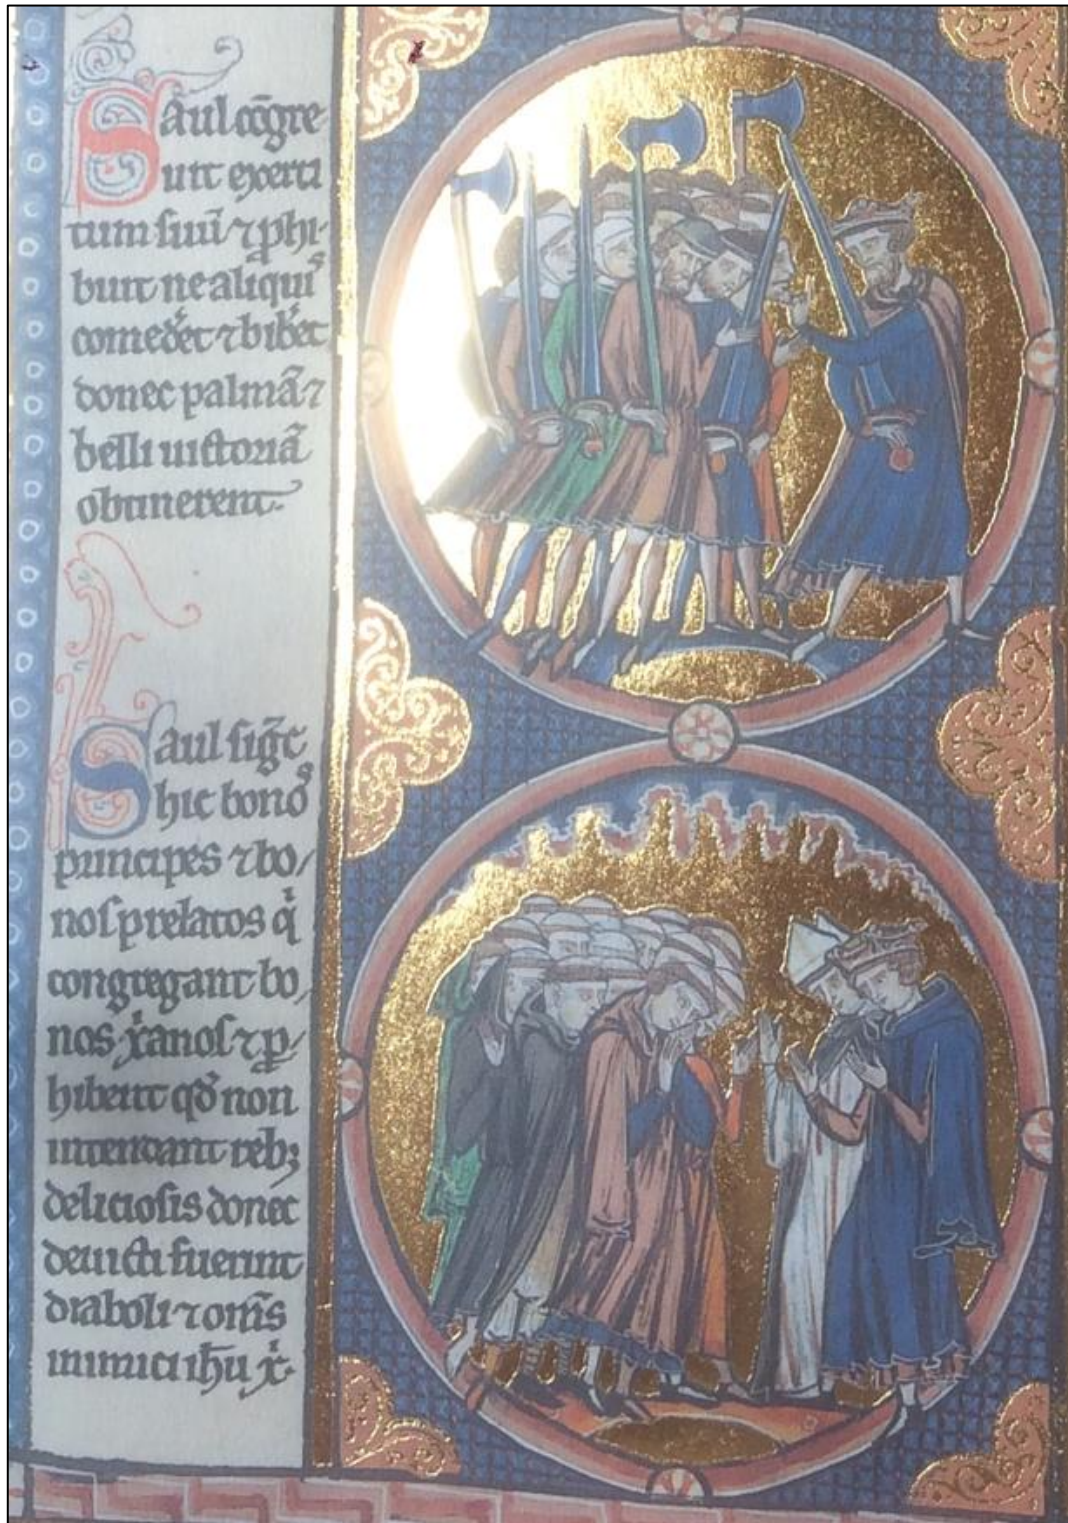 Saul cōgre
uit exerci
tum suū ⁊ ꝓhi
buit ne aliquiſ
comed᷑et ⁊ bib᷑et
donec palmā ⁊
belli uictoriā
obtinerent.
Saul sig̅t
hic bonoſ
principes ⁊ bo/
noſ prelatos qͥ
congregant bo/
nos xͥanoſ ⁊ ꝓ/
hibent qd̓ non
intendant reb;
delicioſis donec
deuicti fuerint
diaboli ⁊ om̄s
inimici ih̄u xͥ.